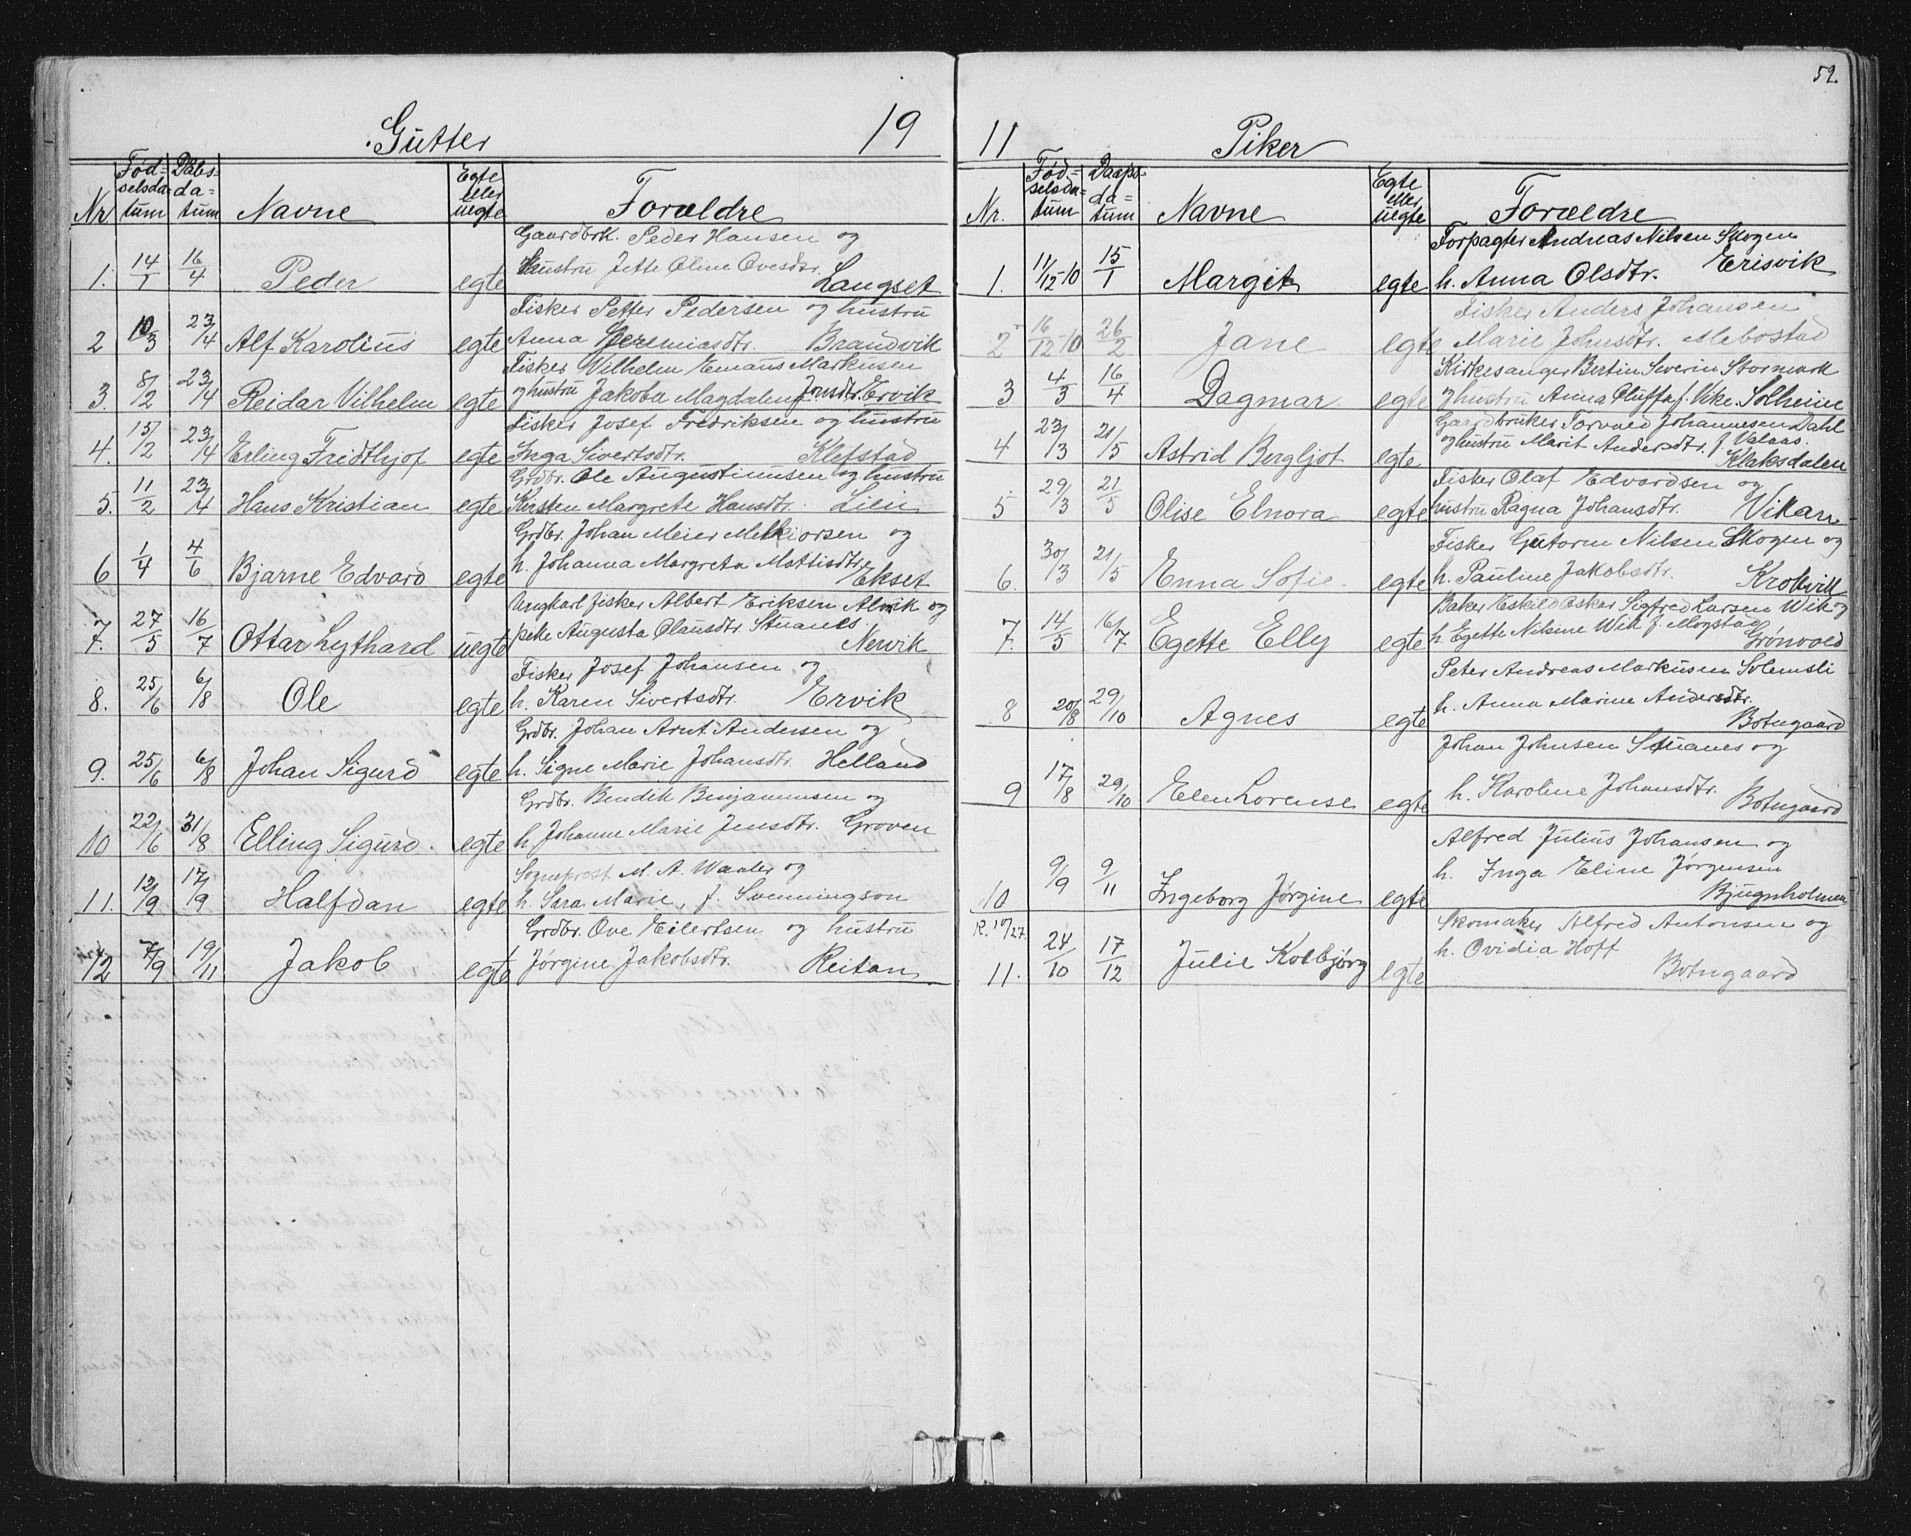 Gutter 19
Nr. Fødselsdatum Dåbsdatum Navne Egte eller uegte Forældre
Gaardbrk. Peder Hansen og
1. 14/1 16/4 Peder egte hustru Jette Oline Ovesdtr. Langset
Fisker Petter Pedersen og hustru
2 10/3 23/4 Alf Karolius egte Anna Jeremiasdtr. Brandvik
Fisker Vilhelm Emaus Markusen
3. 8/2 23/4 Reidar Vilhelm egte og hustru Jakoba Magdalena Jonsdtr. Ervik
Fisker Josef Fredriksen og hustru
4. 15/2 23/4 Erling Fridthjof egte Inga Sivertsdtr. Klefstad
Grdbr. Ole Augustinusen og hustru
5. 11/2 23/4 Hans Kristian egte Kirsten Margrete Hansdtr. Lien
Grdbr. Johan Meier Melkiorsen og
6 1/4 4/6 Bjarne Edvard egte h. Johanna Margreta Mathisdtr. Ekset
Ungkarl fisker Albert Eriksen Alvik og
7. 27/5 16/7 Ottar Lythard uegte pike Augusta Olausdtr. Stuanes Nervik
Fisker Josef Johansen og
8. 25/6 6/8 Ole egte h. Karen Sivertsdtr. Ervik
Grdbr. Johan Arnt Andersen og
9. 25/6 6/8 Johan Sigurd egte h. Signe Marie Johansdtr. Helland
Grdbr. Bendik Benjaminsen og
10 22/6 31/8 Elling Sigurd. egte h. Johanne Marie Jensdtr. Groven
Sogneprest M. A. Waaler og
11. 12/9 17/9 Halfdan egte h. Sara Marie, f. Svenningson
Grdbr. Ove Eilertsen og hustru
12 7/9 19/11 Jakob egte Jørgine Jakobsdtr. Reitan
52.
11 Piker
Nr. Fødselsdatum Daapsdatum Navne Egte eller uegte Forældre
Forpagter Andreas Nilsen Skogen
1. 11/12-10 15/1 Margit egte h. Anna Olsdtr. Erisvik
Fisker Anders Johansen
2 16/12-10 26/2 Jane egte Marie Johnsdtr. Mebostad
Kirkesanger Bertin Severin Stormark
3 4/3 16/4 Dagmar egte hustru Anna Oluffa f. Vik. Solheim
Gaardbruker Torvald Johannesen Dahl
4 23/3 21/5 Astrid Bergljot egte og hustru Marit Andersdtr. f. Valaas. Klaksdalen
Fisker Olaf Edvardsen og
5 29/3 21/5 Olise Elnora egte hustru Ragna Johansdtr. Vikan
Fisker Gutorm Nilsen Skogen og
6. 30/3 21/5 Enna Sofie egte h. Pauline Jakobsdtr. Krokvik
Baker Eskild Oskar Sigfred Larsen Wik og
7. 14/5 16/7 Egette Elly egte h. Egette Nilsine Wik f. Mogstad Grønvold
Peter Andreas Markusen Solemsli
8 20/8 29/10 Agnes egte h. Anna Marine Andersdtr. Botngaard
Johan Johnsen Stuanes og
9 17/8 29/10 Elen Lorense egte h. Karoline Johansdtr. Botngaard
Alfred Julius Johansen og
10 9/9 9/11 Ingeborg Jørgine egte h. Inga Eline Jørgensen Bjugnholmen
Skomaker Alfred Antonsen og
11. 24/10 17/12 Julie Kolbjørg egte h. Ovidia Hoff Botngaard